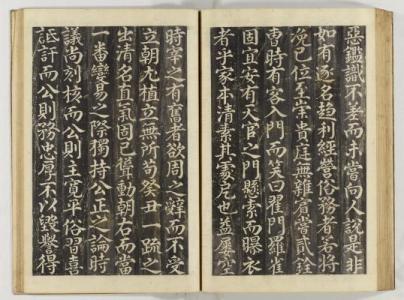 惡鑑識不差而未嘗向人說是非
如有逐名趨利經營俗務者若將
浼已位至崇貴庭無雜賓嘗貳銓
曹時有客入門而笑曰翟門羅雀
固宜安有天官之門懸素而曝衣
者乎家本清素其處宅也益屢空
時宰之有奮者欲周之辭而不受
立朝尤植立無所苟癸丑一疏之
出清名直氣固已聳動朝右而當
一番變易之際獨持公正之論時
議尚刻核而公則主寬平俗習喜
詆訐而公則務忠厚不以毀譽得